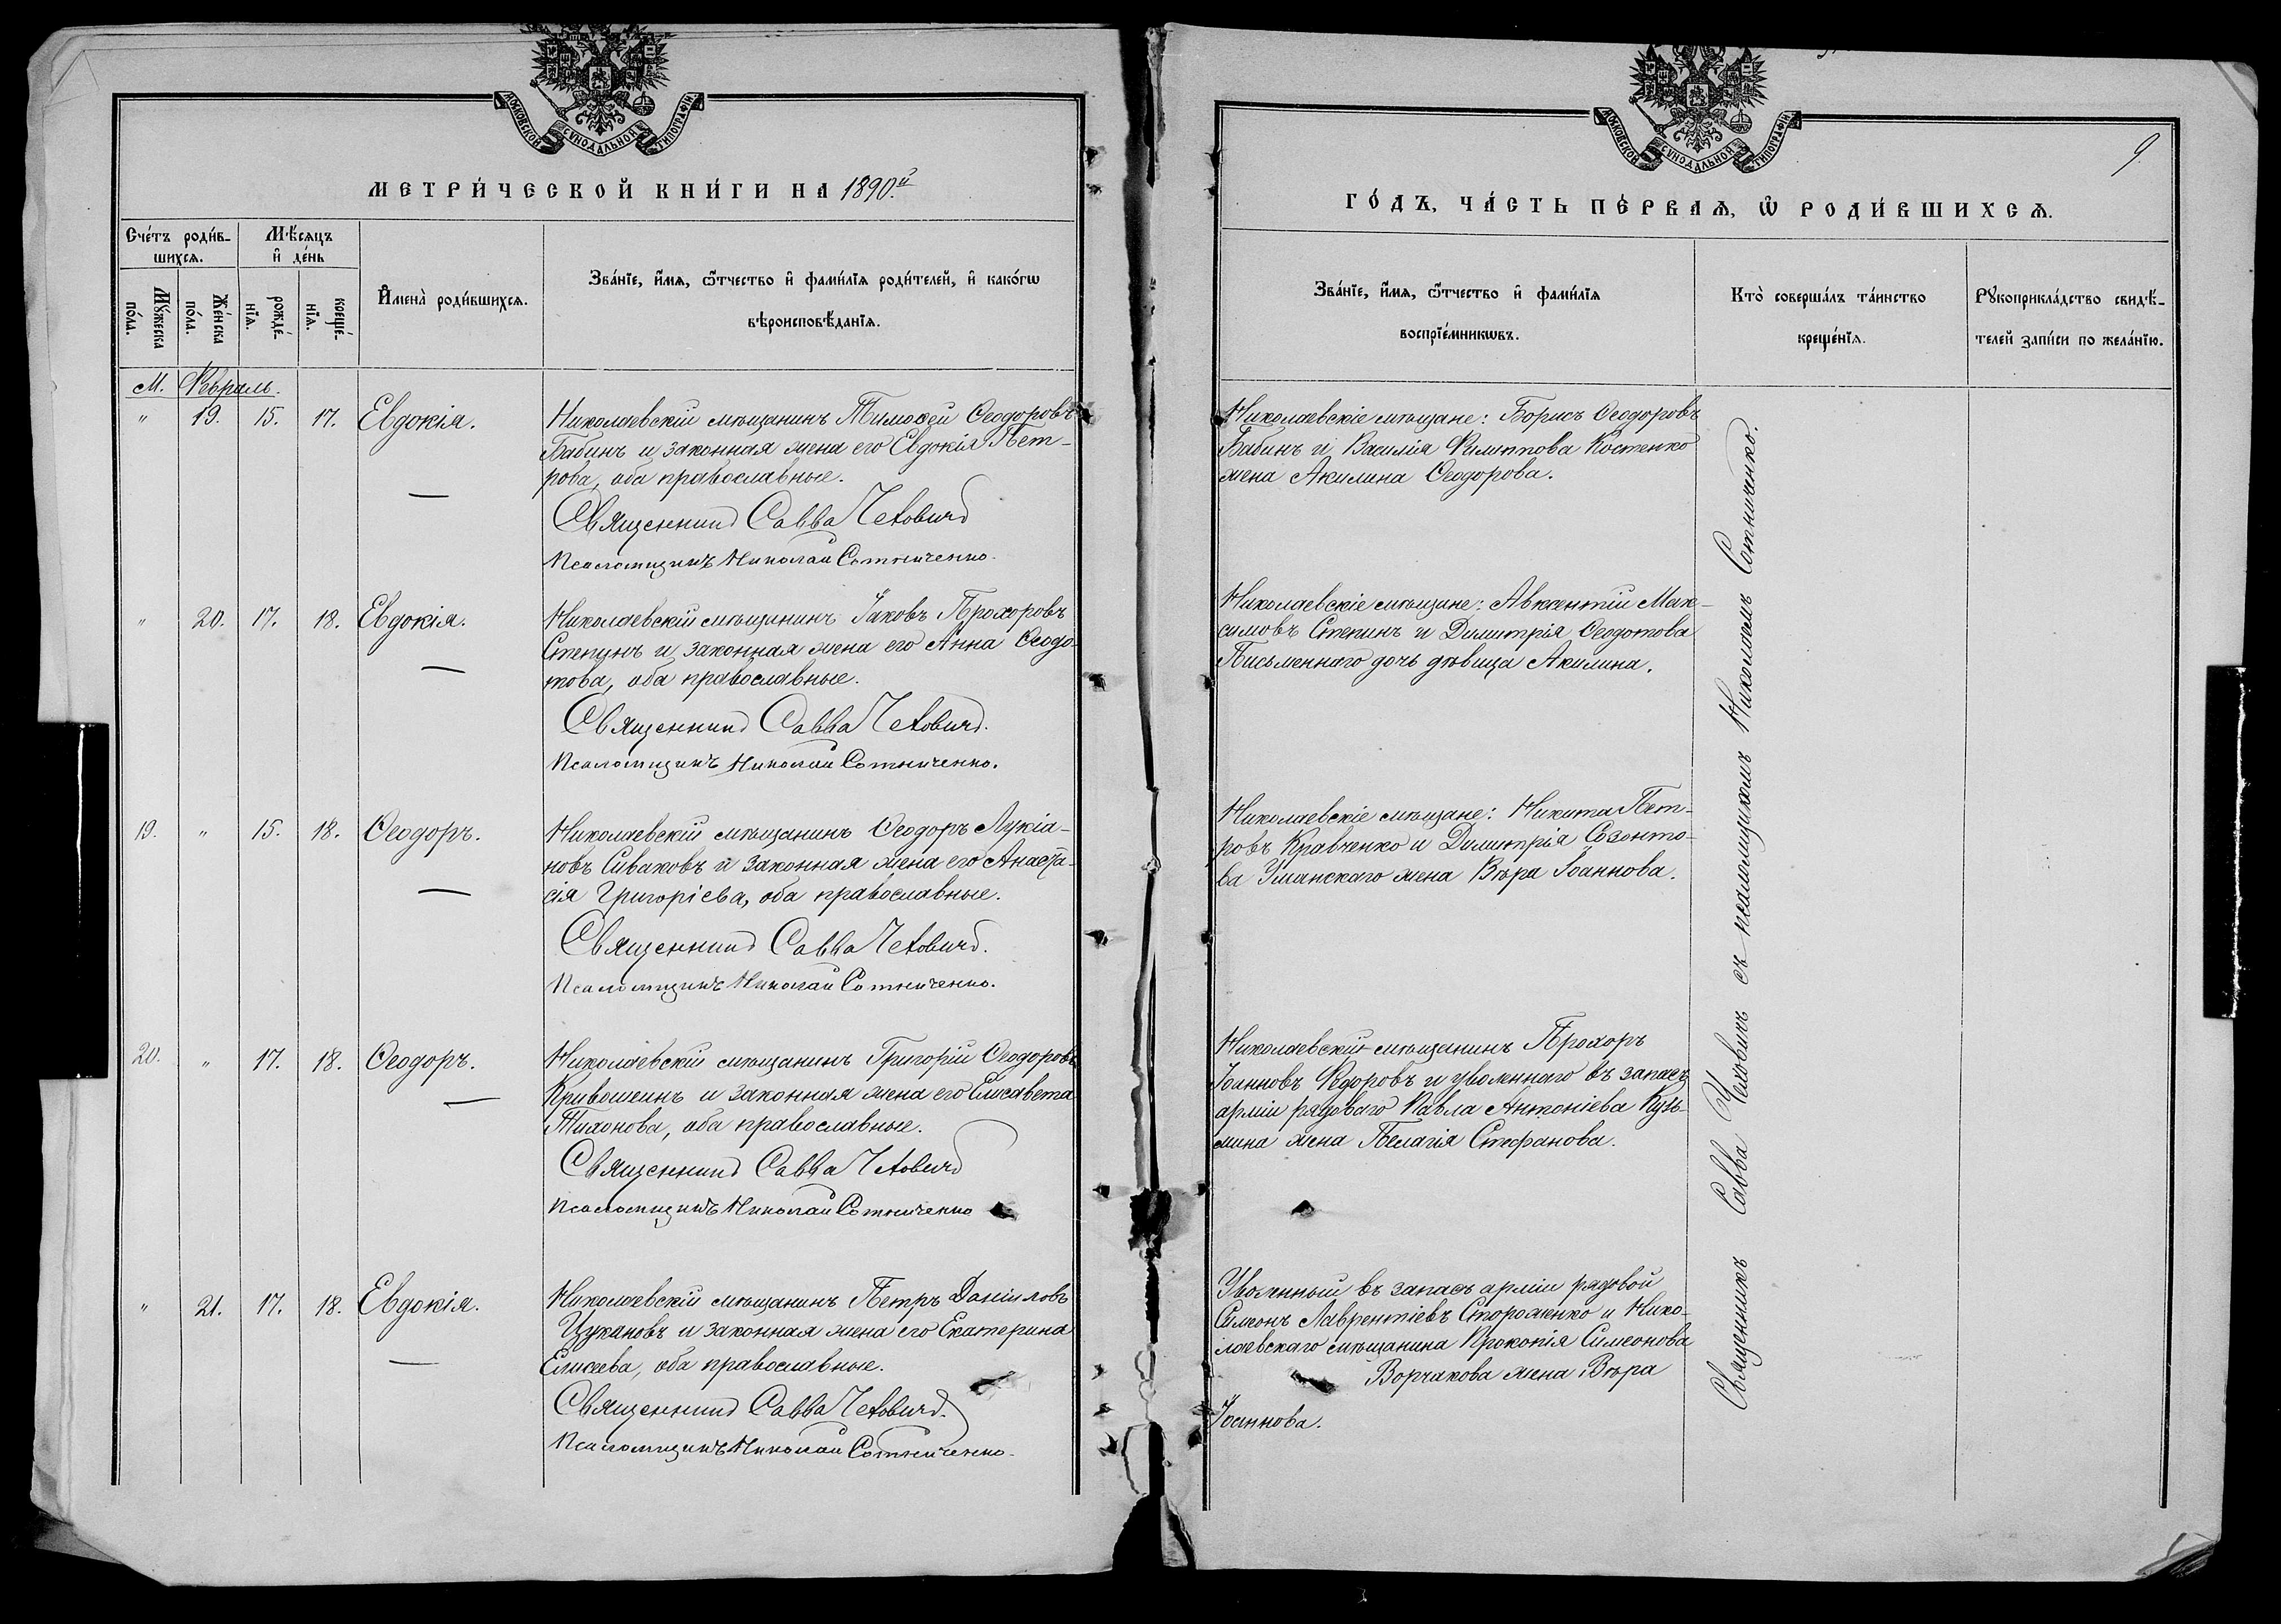 МОСКОВСКОЙ СѴНОДАЛЬНОЙ ТИПОГРАФІИ
МЕТРИ́ЧЕСКОЙ КНИ́ГИ НА 1890.й
Сче́тъ роди́в-
шихсѧ.
Мѣ́сѧцъ
и҆ де́нь
Мꙋ́жеска
по́ла.
Же́нска
по́ла.
рожде́-
нїѧ.
креще́-
нїѧ.
И҆мена̀ роди́вшихсѧ.
Зва́нїе, и҆́мѧ, ѻ҆́тчество и҆ фами́лїѧ роди́телей, и҆ како́гѡ
вѣроисповѣ́данїѧ.
М. Февраль.
" 19. 15. 17. Евдокія.
Николаевскій мѣщанинъ Тимоѳей Ѳеодоровъ
Бабинъ и законная жена его Евдокія Пет-
рова, оба православные.
Священникъ Савва Чеховичъ
Псаломщикъ Николай Сотниченко.
" 20. 17. 18. Евдокія.
Николаевскій мѣщанинъ Іаковъ Прохоровъ
Степинъ и законная жена его Анна Ѳеодо-
това, оба православные.
Священникъ Савва Чеховичъ.
Псаломщикъ Николай Сотниченко.
19. " 15. 18. Ѳеодоръ.
Николаевскій мѣщанинъ Ѳеодоръ Лукіа-
новъ Сиваковъ и законная жена его Анаста-
сія Григоріева, оба православные.
Священникъ Савва Чеховичъ.
Псаломщикъ Николай Сотниченко.
20. " 17. 18. Ѳеодоръ.
Николаевскій мѣщанинъ Григорій Ѳеодоровъ
Кривошеинъ и законная жена его Елисавета
Тихонова, оба православные.
Священникъ Савва Чеховичъ
Псаломщикъ Николай Сотниченко
" 21. 17. 18. Евдокія.
Николаевскій мѣщанинъ Петръ Даніиловъ
Цукановъ и законная жена его Екатерина
Елисеева, оба православные.
Священникъ Савва Чеховичъ.
Псаломщикъ Николай Сотниченко.
МОСКОВСКОЙ СѴНОДАЛЬНОЙ ТИПОГРАФІИ
9.
ГО́ДЪ, ЧА́СТЬ ПЕ́РВАѦ, Ѡ҆ РОДИ́ВШИХСѦ.
Зва́нїе, и҆́мѧ, ѻ҆́тчество и҆ фами́лїѧ
воспрїе́мникѡвъ.
Кто̀ соверша́лъ та́инство
креще́нїѧ.
Рꙋкоприкла́дство свидѣ́-
телей за́писи по жела́нїю.
Николаевскіе мѣщане: Борисъ Ѳеодоровъ
Бабинъ и Василія Филиппова Костенко
жена Акилина Ѳеодорова.
Николаевскіе мѣщане: Авксентій Мак-
симовъ Степинъ и Димитрія Ѳеодотова
Письменнаго дочь дѣвица Акилина.
Николаевскіе мѣщане: Никита Пет-
ровъ Кравченко и Димитрія Созонто-
ва Уманскаго жена Вѣра Іоаннова.
Николаевскій мѣщанинъ Прохоръ
Іоанновъ Федоровъ и уволеннаго въ запасъ
арміи рядоваго Павла Антоніева Кузь-
мина жена Пелагія Стефанова.
Уволенный въ запасъ арміи рядовой
Симеонъ Лаврентіевъ Стороженко и Нико-
лаевскаго мѣщанина Прокопія Симеонова
Ворчакова жена Вѣра
Іоаннова.
Священникъ Савва Чеховичъ съ псаломщикомъ Николаемъ Сотниченко.